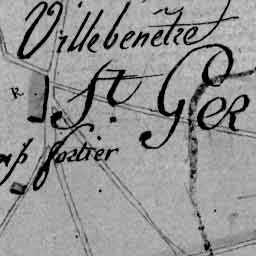 Villebenêtre
St. Ger
fortier